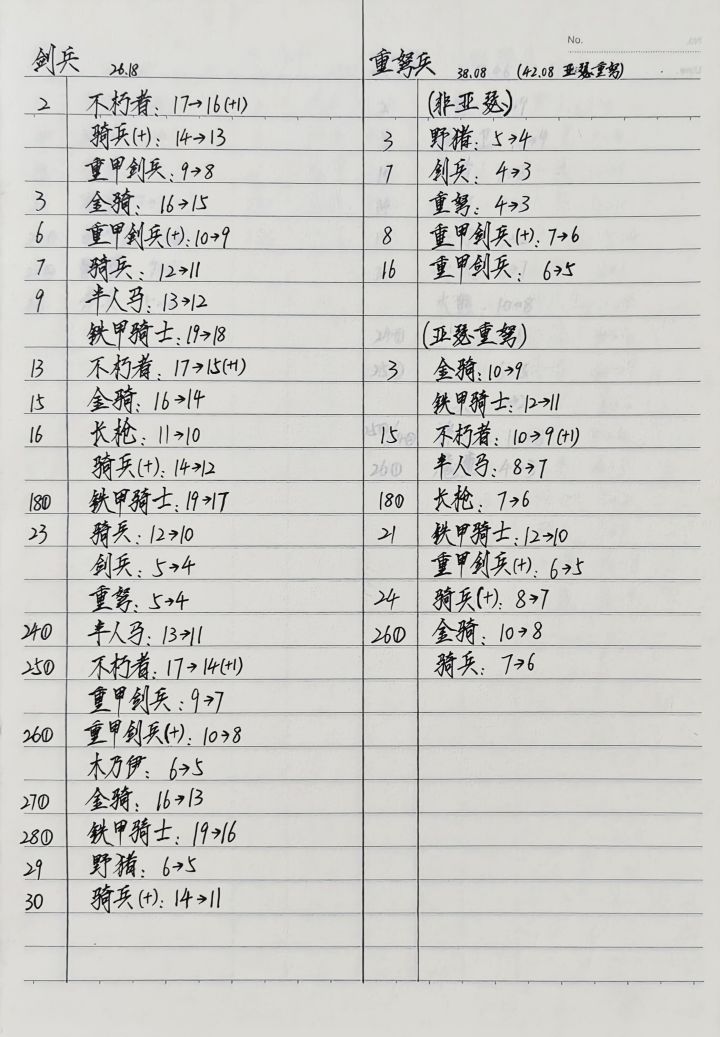 No.
剑兵 26.18
2 不朽者：17→16(+1)
骑兵(+)：14→13
重甲剑兵：9→8
3 金骑：16→15
6 重甲剑兵(+)：10→9
7 骑兵：12→11
9 半人马：13→12
铁甲骑士：19→18
13 不朽者：17→15(+1)
15 金骑：16→14
16 长枪：11→10
骑兵(+)：14→12
18① 铁甲骑士：19→17
23 骑兵：12→10
剑兵：5→4
重弩：5→4
24① 半人马：13→11
25① 不朽者：17→14(+1)
重甲剑兵：9→7
26① 重甲剑兵(+)：10→8
木乃伊：6→5
27① 金骑：16→13
28① 铁甲骑士：19→16
29 野猪：6→5
30 骑兵(+)：14→11
重弩兵 38.08 (42.08 亚瑟重弩)
(非亚瑟)
3 野猪：5→4
7 剑兵：4→3
重弩：4→3
8 重甲剑兵(+)：7→6
16 重甲剑兵：6→5
(亚瑟重弩)
3 金骑：10→9
铁甲骑士：12→11
15 不朽者：10→9(+1)
半人马：8→7
18① 长枪：7→6
21 铁甲骑士：12→10
重甲剑兵(+)：6→5
24 骑兵(+)：8→7
26① 金骑：10→8
骑兵：7→6